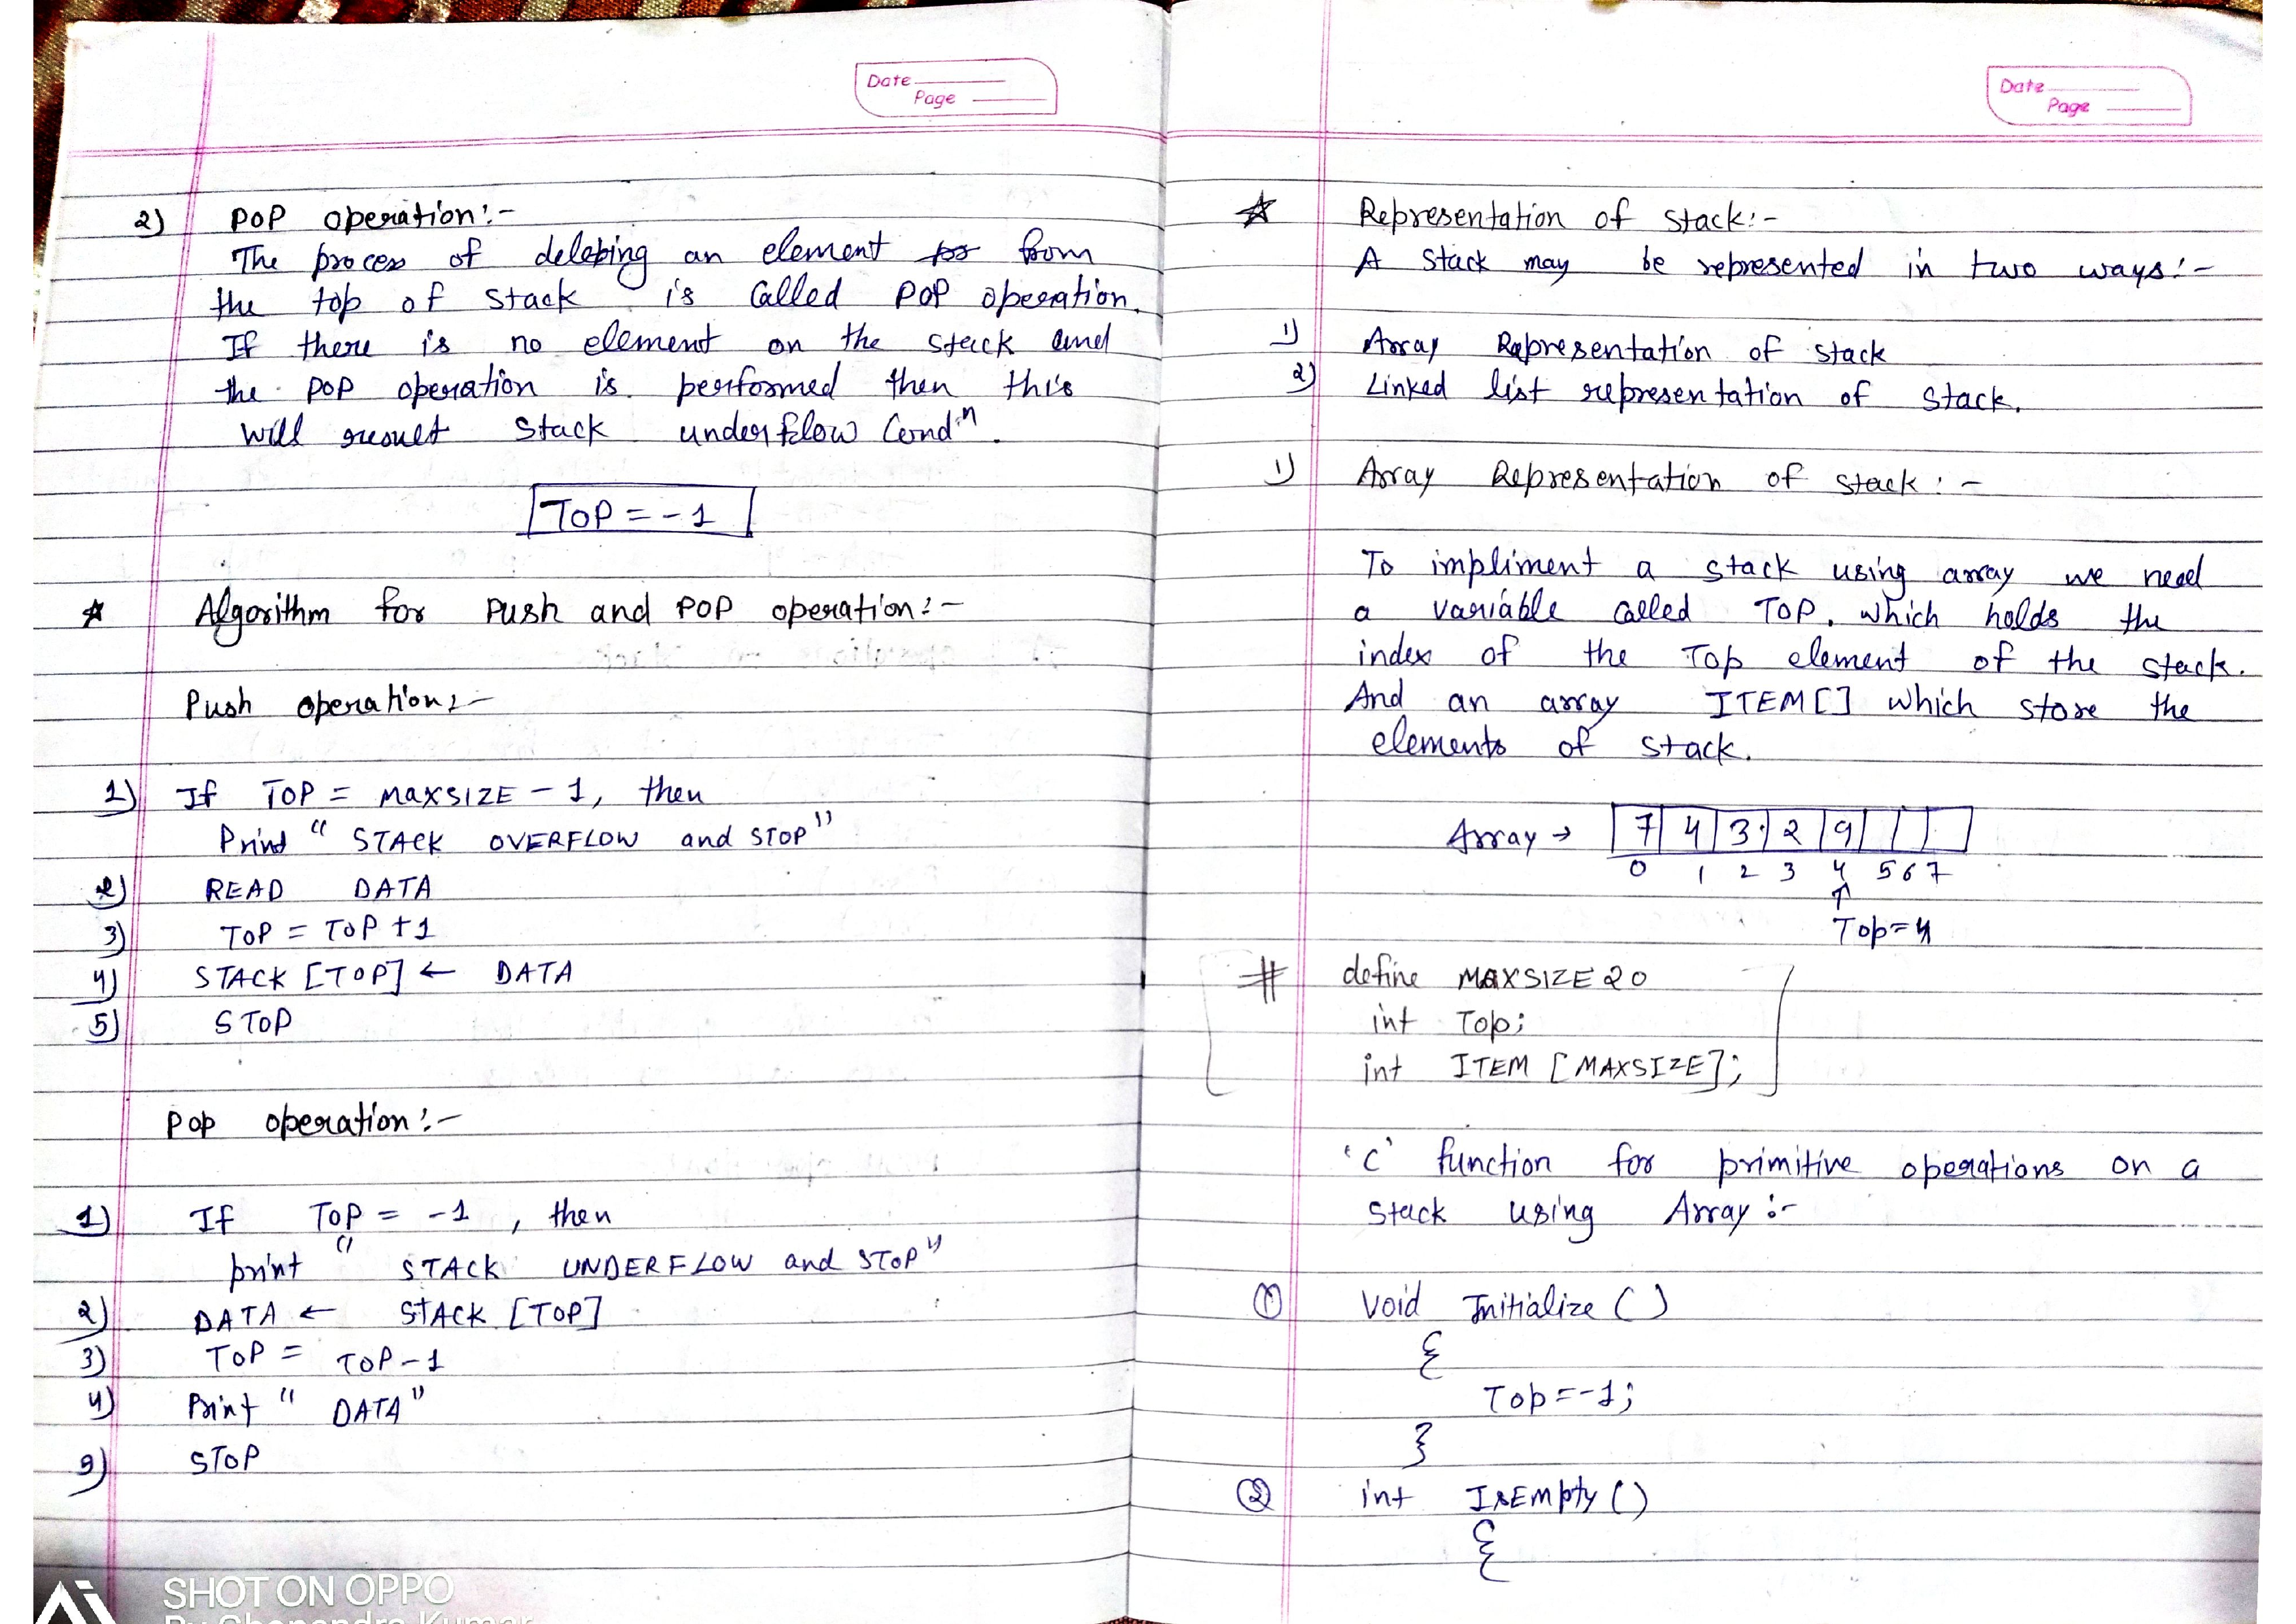 Date
Page
2) POP operation:-
The process of deleting an element from
the top of stack is called POP operation.
If there is no element on the stack and
the POP operation is performed then this
will result stack underflow Condⁿ.
TOP = -1
☆ Algorithm for Push and POP operation:-
Push operation:-
1) If TOP = MAXSIZE - 1, then
Print " STACK OVERFLOW and STOP"
2) READ DATA
3) TOP = TOP + 1
4) STACK [TOP] ← DATA
5) STOP
Pop operation:-
1) If TOP = -1 , then
print " STACK UNDERFLOW and STOP"
2) DATA ← STACK [TOP]
3) TOP = TOP - 1
4) Print " DATA"
5) STOP
SHOT ON OPPO
Date
Page
☆ Representation of stack:-
A Stack may be represented in two ways:-
1) Array Representation of stack
2) Linked list representation of stack.
1) Array Representation of stack:-
To impliment a stack using array we need
a variable called TOP. which holds the
index of the Top element of the stack.
And an array ITEM[] which store the
elements of stack.
Array → 7 4 3 2 9
0 1 2 3 4 5 6 7
↑
Top=4
# define MAXSIZE 20
int Top;
int ITEM [MAXSIZE];
'C' function for primitive operations on a
Stack using Array:-
① Void Initialize ()
{
Top=-1;
}
② int IsEmpty ()
{